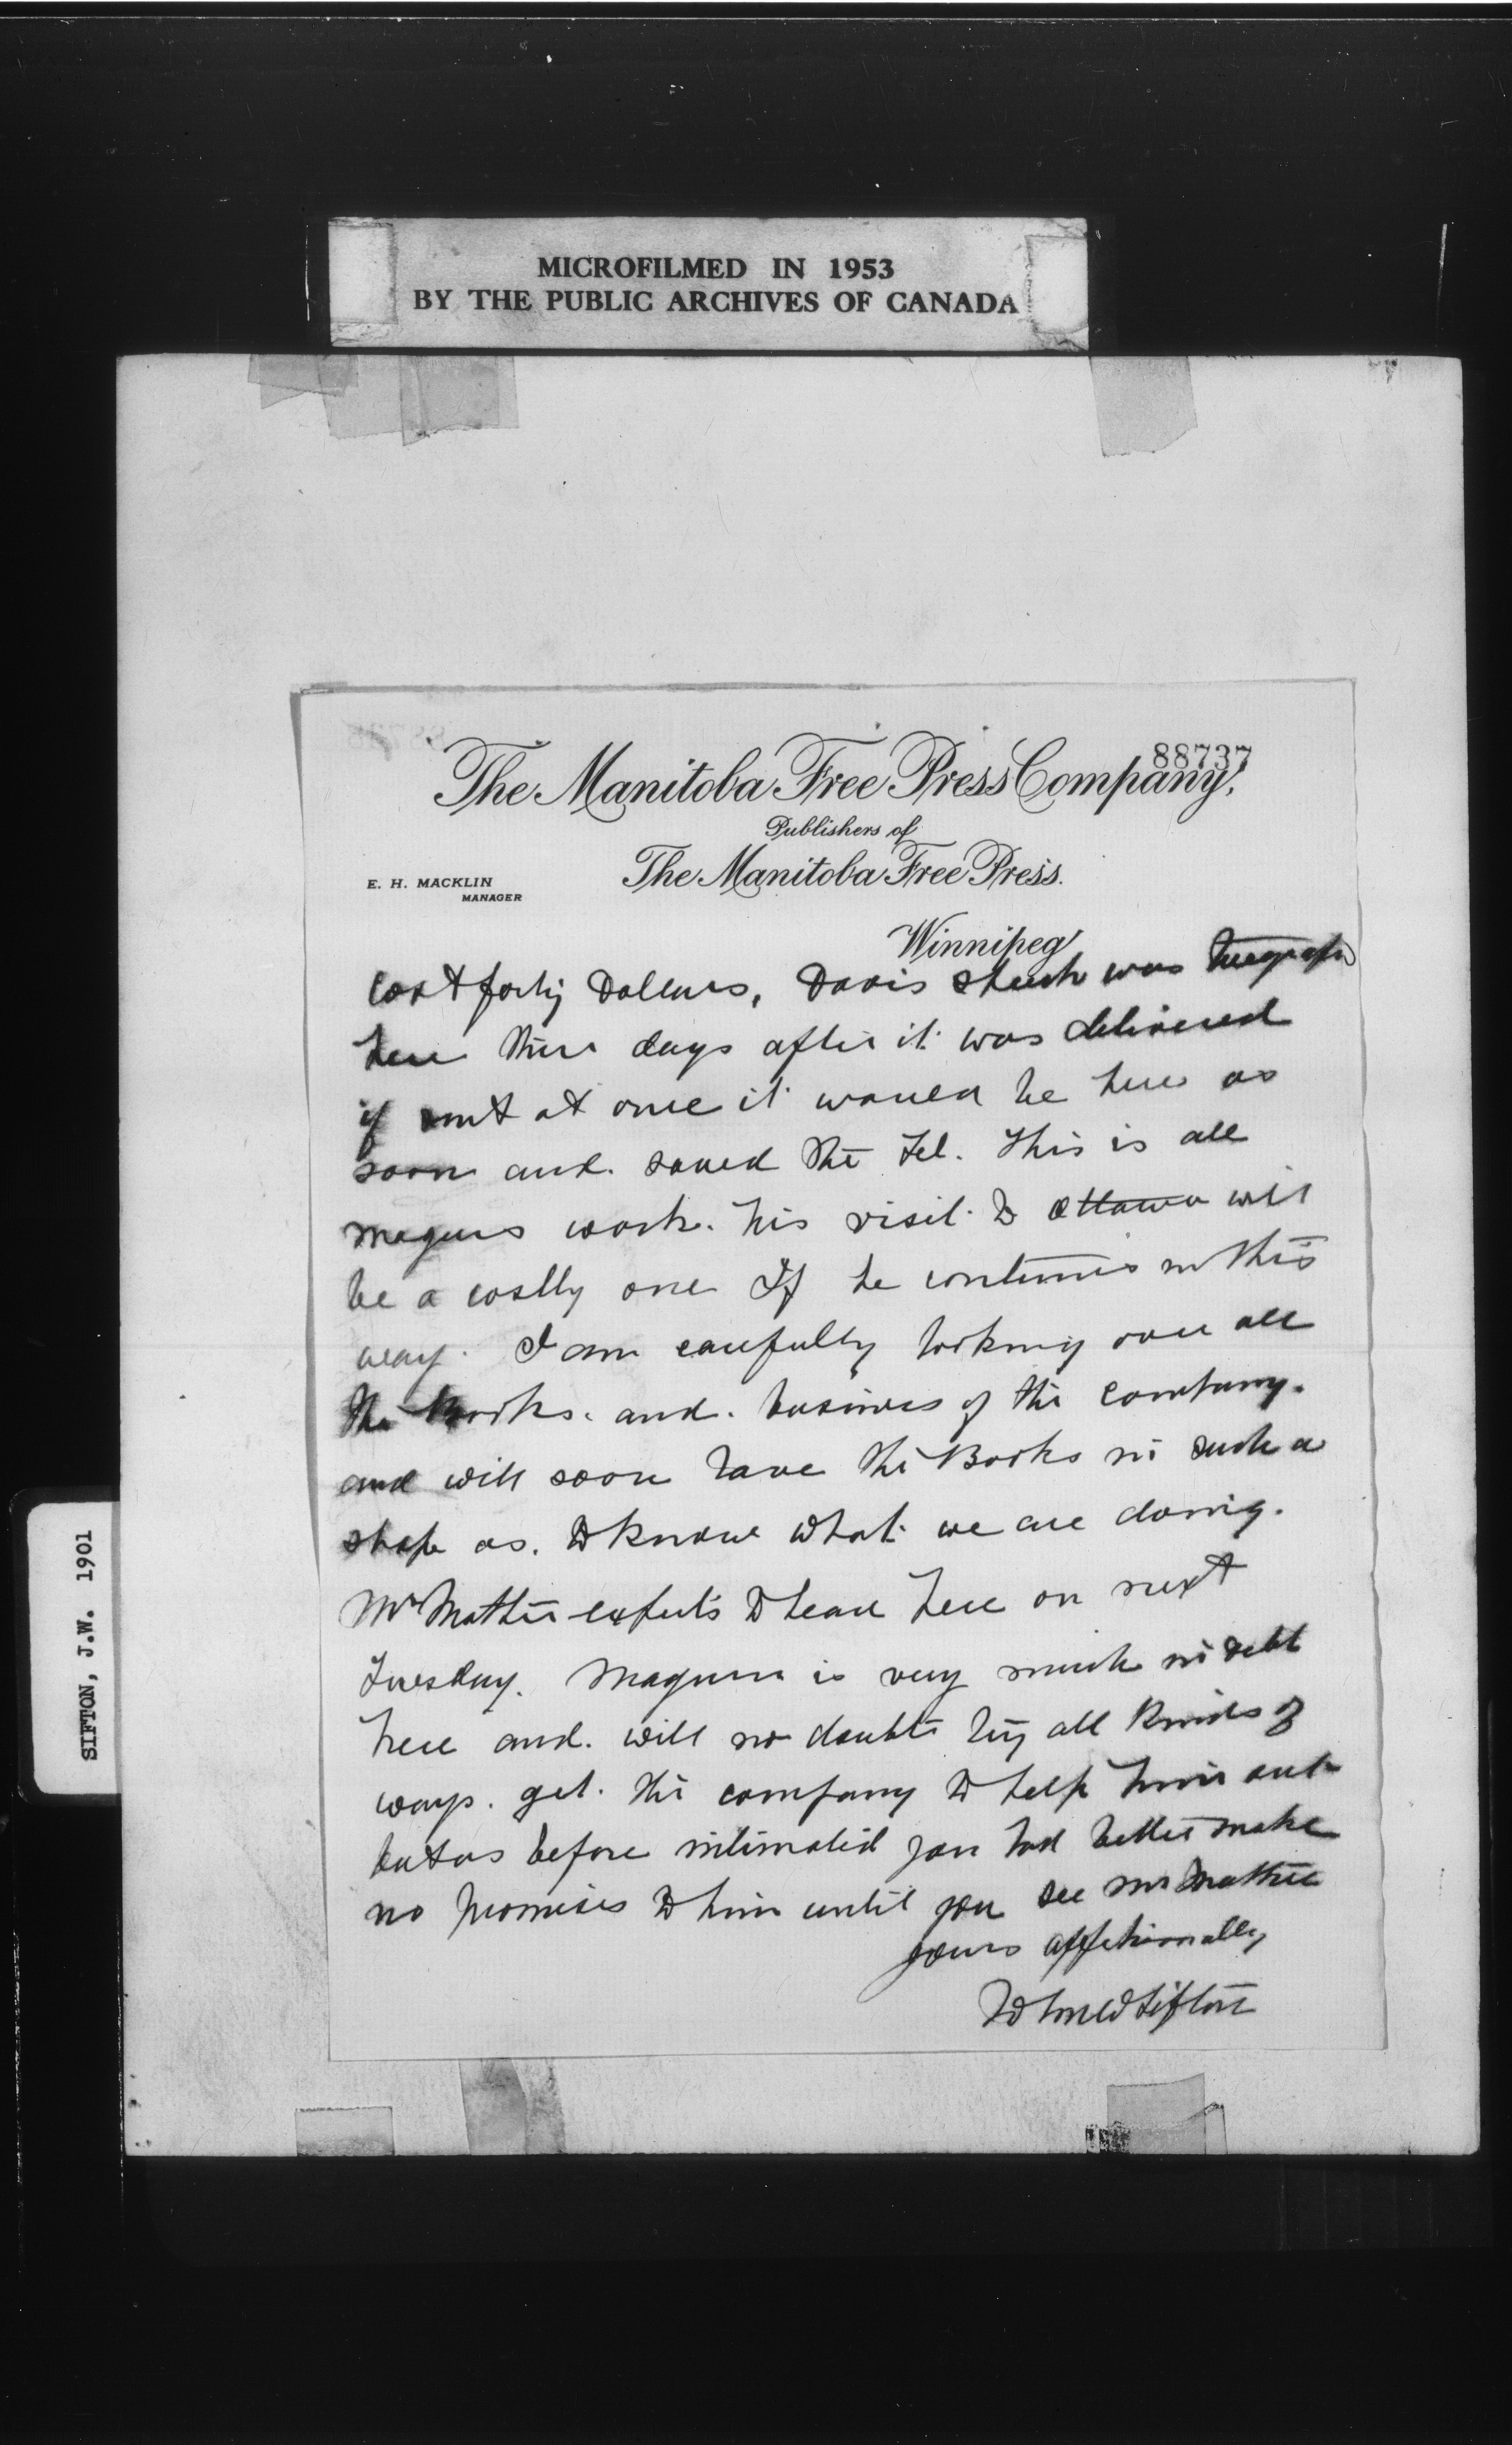 MICROFILMED IN 1953
BY THE PUBLIC ARCHIVES OF CANADA
88737
The Manitoba Free Press Company,
Publishers of
The Manitoba Free Press.
E. H. MACKLIN
MANAGER
Winnipeg
cost forty Dollars, Davis speech was telegraph
here three days after it was delivered
if sent at once it would be here as
soon and. saved the Tel. This is all
Magurs work. his visit to Ottawa will
be a costly one If he continues in this
way. I am carefully looking over all
the Books. and. business of the company.
and will soon have the Books in such a
shape as. to know what we are doing.
Mr Mather expects to leave here on next
Tuesday. Magurn is very much in debt
here and. will no doubt try all kinds of
ways. get. the company to help him out
but as before intimated you had better make
no promises to him until you see Mr Mather
yours affectionally
John W Sifton
SIFTON, J.W. 1901